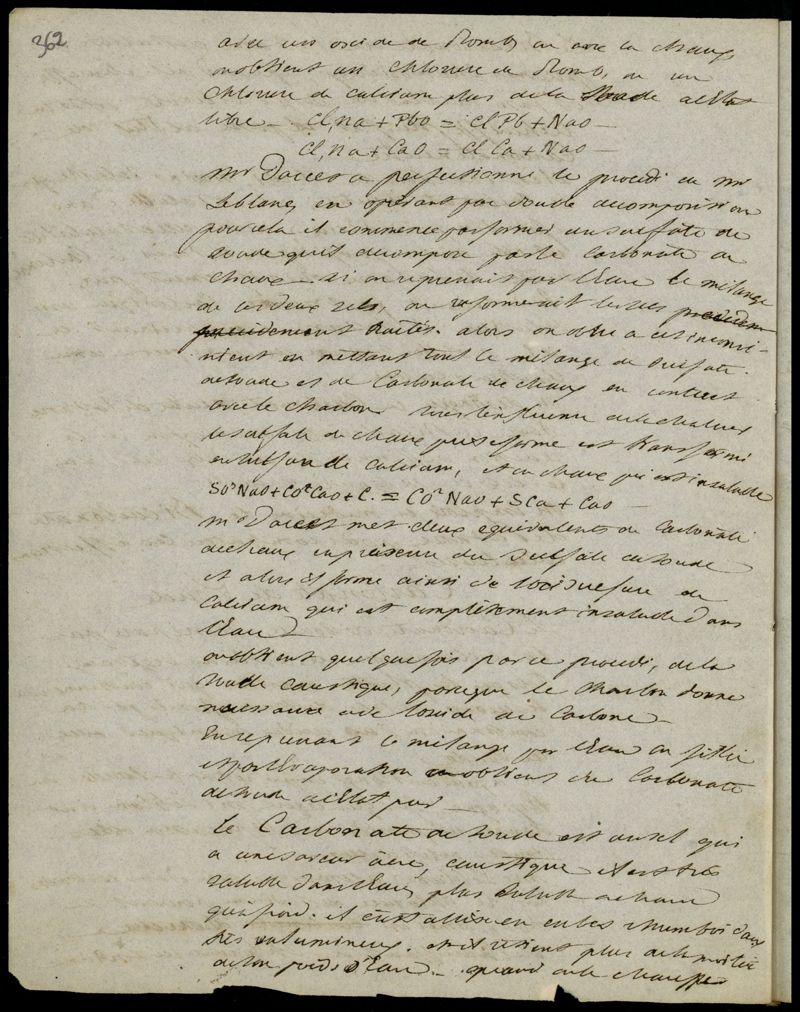 362
avec un oxide de Plomb, ou avec la chaux,
on obtient un Chlorure de Plomb, ou un
Chlorure de Calcium plus de la Soude à l'Etat
libre — Cl, Na + PbO = Cl Pb + NaO —
Cl, Na + CaO = Cl Ca + NaO —
Mr Darcet a perfectionné le procédé de Mr
Leblanc, en opérant par double décomposition
pour cela il commence par former un sulfate de
soude qu'il décompose par le Carbonate de
chaux — si on reprenait par l'Eau le mélange
de ces deux sels, on reformerait les sels
traités. alors on obvie à cet inconvé-
nient en mettant tout le mélange de sulfate
de soude et de Carbonate de chaux en contact
avec le charbon sous l'influence de la chaleur
le sulfate de chaux qui se forme est transformé
en sulfure de Calcium, et en chaux qui est insoluble
SO3NaO + CO2CaO + C. = CO2NaO + SCa + CaO —
Mr Darcet met deux équivalents de Carbonate
de chaux en présence du Sulfate de soude
et alors il se forme ainsi de l'oxisulfure de
Calcium qui est complètement insoluble dans
l'Eau —
on obtient quelquefois par ce procédé, de la
soude caustique, parceque le charbon donne
naissance à de l'oxide de Carbone —
En reprenant le mélange par l'Eau on filtre
et par Evaporation on obtient du Carbonate
de soude à l'Etat pur —
Le Carbonate de soude est un sel qui
a une saveur âcre, caustique il est très
soluble dans l'Eau, plus soluble à chaud
qu'à froid. il cristallise en cubes rhomboïdaux
très volumineux. et il retient plus de la moitié
de son poids d'Eau — quand on le chauffe